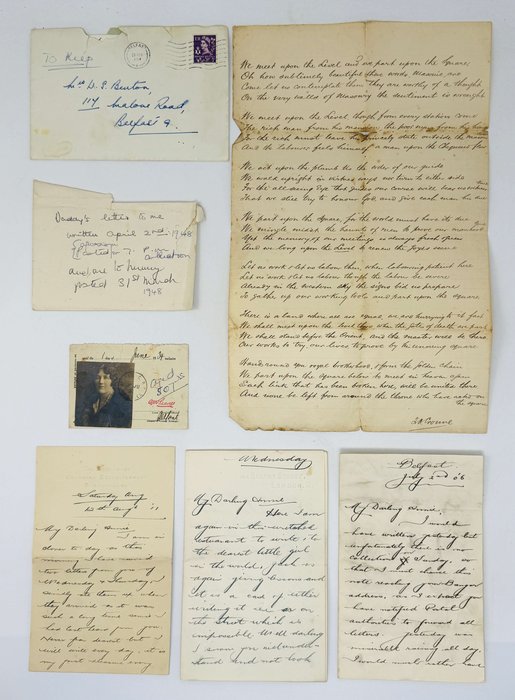 To Keep
BELFAST
Mrs D. S. Benton,
117 Malone Road,
Belfast 9.
Daddy's letter to me
written April 2nd 1948
Posted for 7. P.
and one to mummy
posted 31st March
1948
June
We meet upon the Level and we part upon the Square
Oh how sublimely beautiful these words Masonic are
Come let us contemplate them They are worthy of a thought
On the very walls of Masonry the sentiment is wrought
We meet upon the Level though from every station come
The rich man from his mansion the poor man from his
For the rich must leave his princely state outside the
And the labourer feels himself a man upon the Chequered
We act upon the plumb tis the order of our guide
We walk upright in virtues ways nor turn to either side
For the all-seeing Eye that guides our course will bear us witness
That we still try to honour God and give each man his due
We part upon the square, for the world must have its due
We mingle midst the haunts of men to prove our manhood
Yet the memory of our meetings is always fresh
And we long upon the Level to renew the joyous
Let us work & let us labour then, when labouring
Let us work & let us labour though the labour be severe
Already in the western sky the signs bid us prepare
To gather up our working tools and part upon the square.
There is a land where all are equal, we are hurrying to it fast
We shall meet upon the Level there when the gates of death are past
We shall stand before the Orient, and the Master will be there
Our works to try, our lives to prove by His unerring square
Hands round you royal brotherhood, & form the golden Chain
We part upon the square below to meet in heaven again
Each link that has been broken here, will be united there
And none be left from around the throne who have acted on
the square
Saturday
My Darling Annie
I am in
closer to day as this
morning I have received
two letters from you of
Wednesday & Thursday, I
simply ate them up when
they arrived as it was
such a long time since I
had last hear from you.
Never fear dearest but I
will write every day, it is
my first pleasure every
Wednesday
My Darling Annie
Here I am
again in this wretched
restaurant to write to
the dearest little girl
in the world, just as
again giving lessons and
it is a case of either
writing it here or on
the Street which is
impossible. Well darling
I soon you
stand and not look
Belfast
July 2nd 06
My Darling Annie,
I would
have written yesterday but
unfortunately there is no
collection on Sunday, so
that I just chance this
note reaching your Bangor
address, as I expect you
have notified Postal
authorities to forward all
letters. Yesterday was
miserable raining all day.
I would much rather have